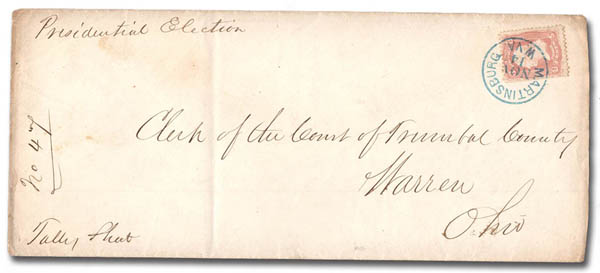 Presidential Election
MARTINSBURG W.VA.
NOV
No 47
Clerk of the Court of Trumbal County
Warren
Ohio
Tally Sheet